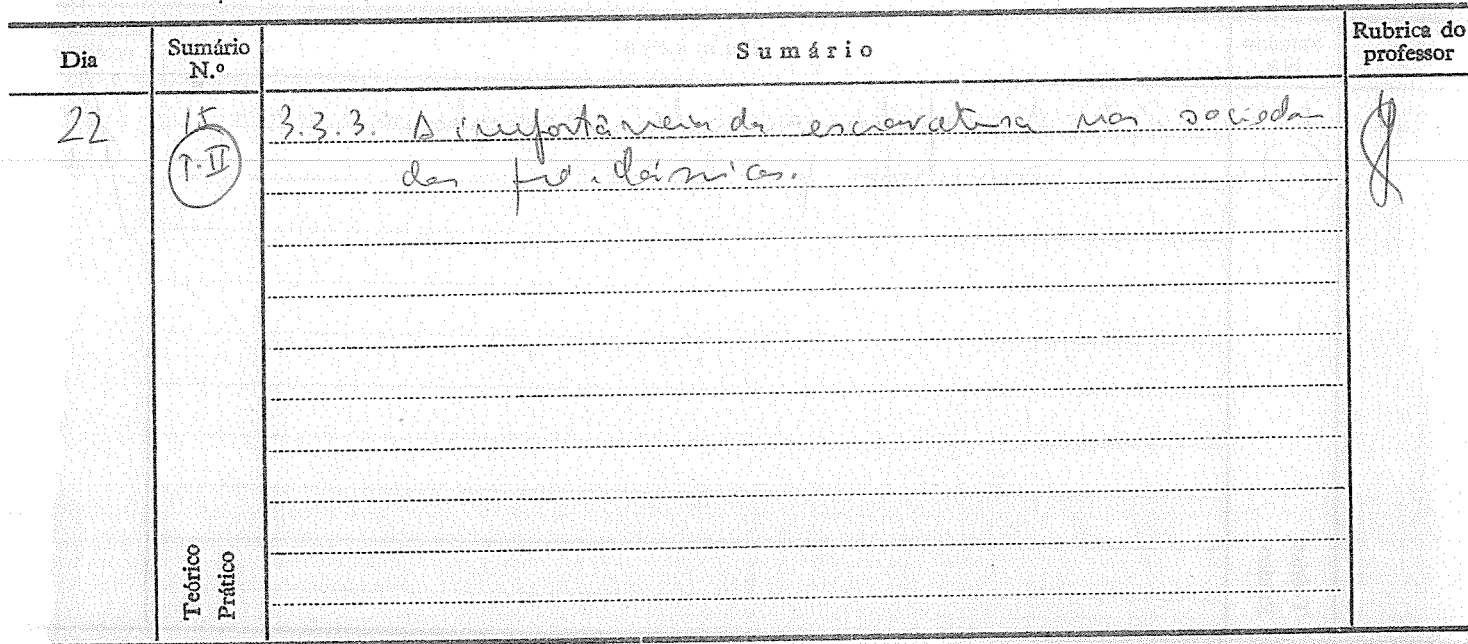 Dia
Sumário N.º
Sumário
Rubrica do professor
22
15
T-II
3.3.3. A importância da escravatura nas socieda
des pré-clássicas.
Teórico
Prático